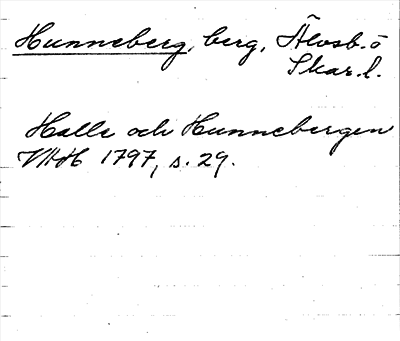 Hunneberg, berg, Älvsb. o
Skar. l.
Halle och Hunnebergen
VAH 1797, s. 29.